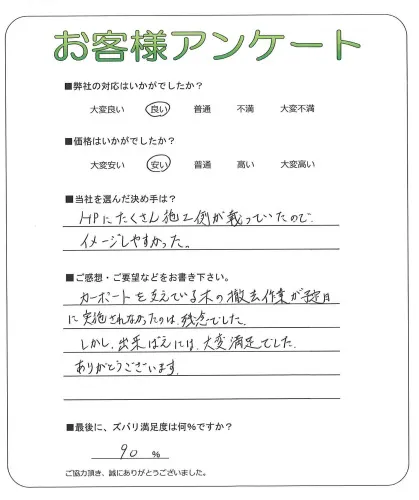 お客様アンケート
■弊社の対応はいかがでしたか？
大変良い 良い 普通 不満 大変不満
■価格はいかがでしたか？
大変安い 安い 普通 高い 大変高い
■当社を選んだ決め手は？
HPにたくさん施工例が載っていたので
イメージしやすかった。
■ご感想・ご要望などをお書き下さい。
カーポートを支えている木の撤去作業が予定日
に実施されなかったのは、残念でした。
しかし、出来ばえには、大変満足でした。
ありがとうございます。
■最後に、ズバリ満足度は何%ですか？
90 %
ご協力頂き、誠にありがとうございました。